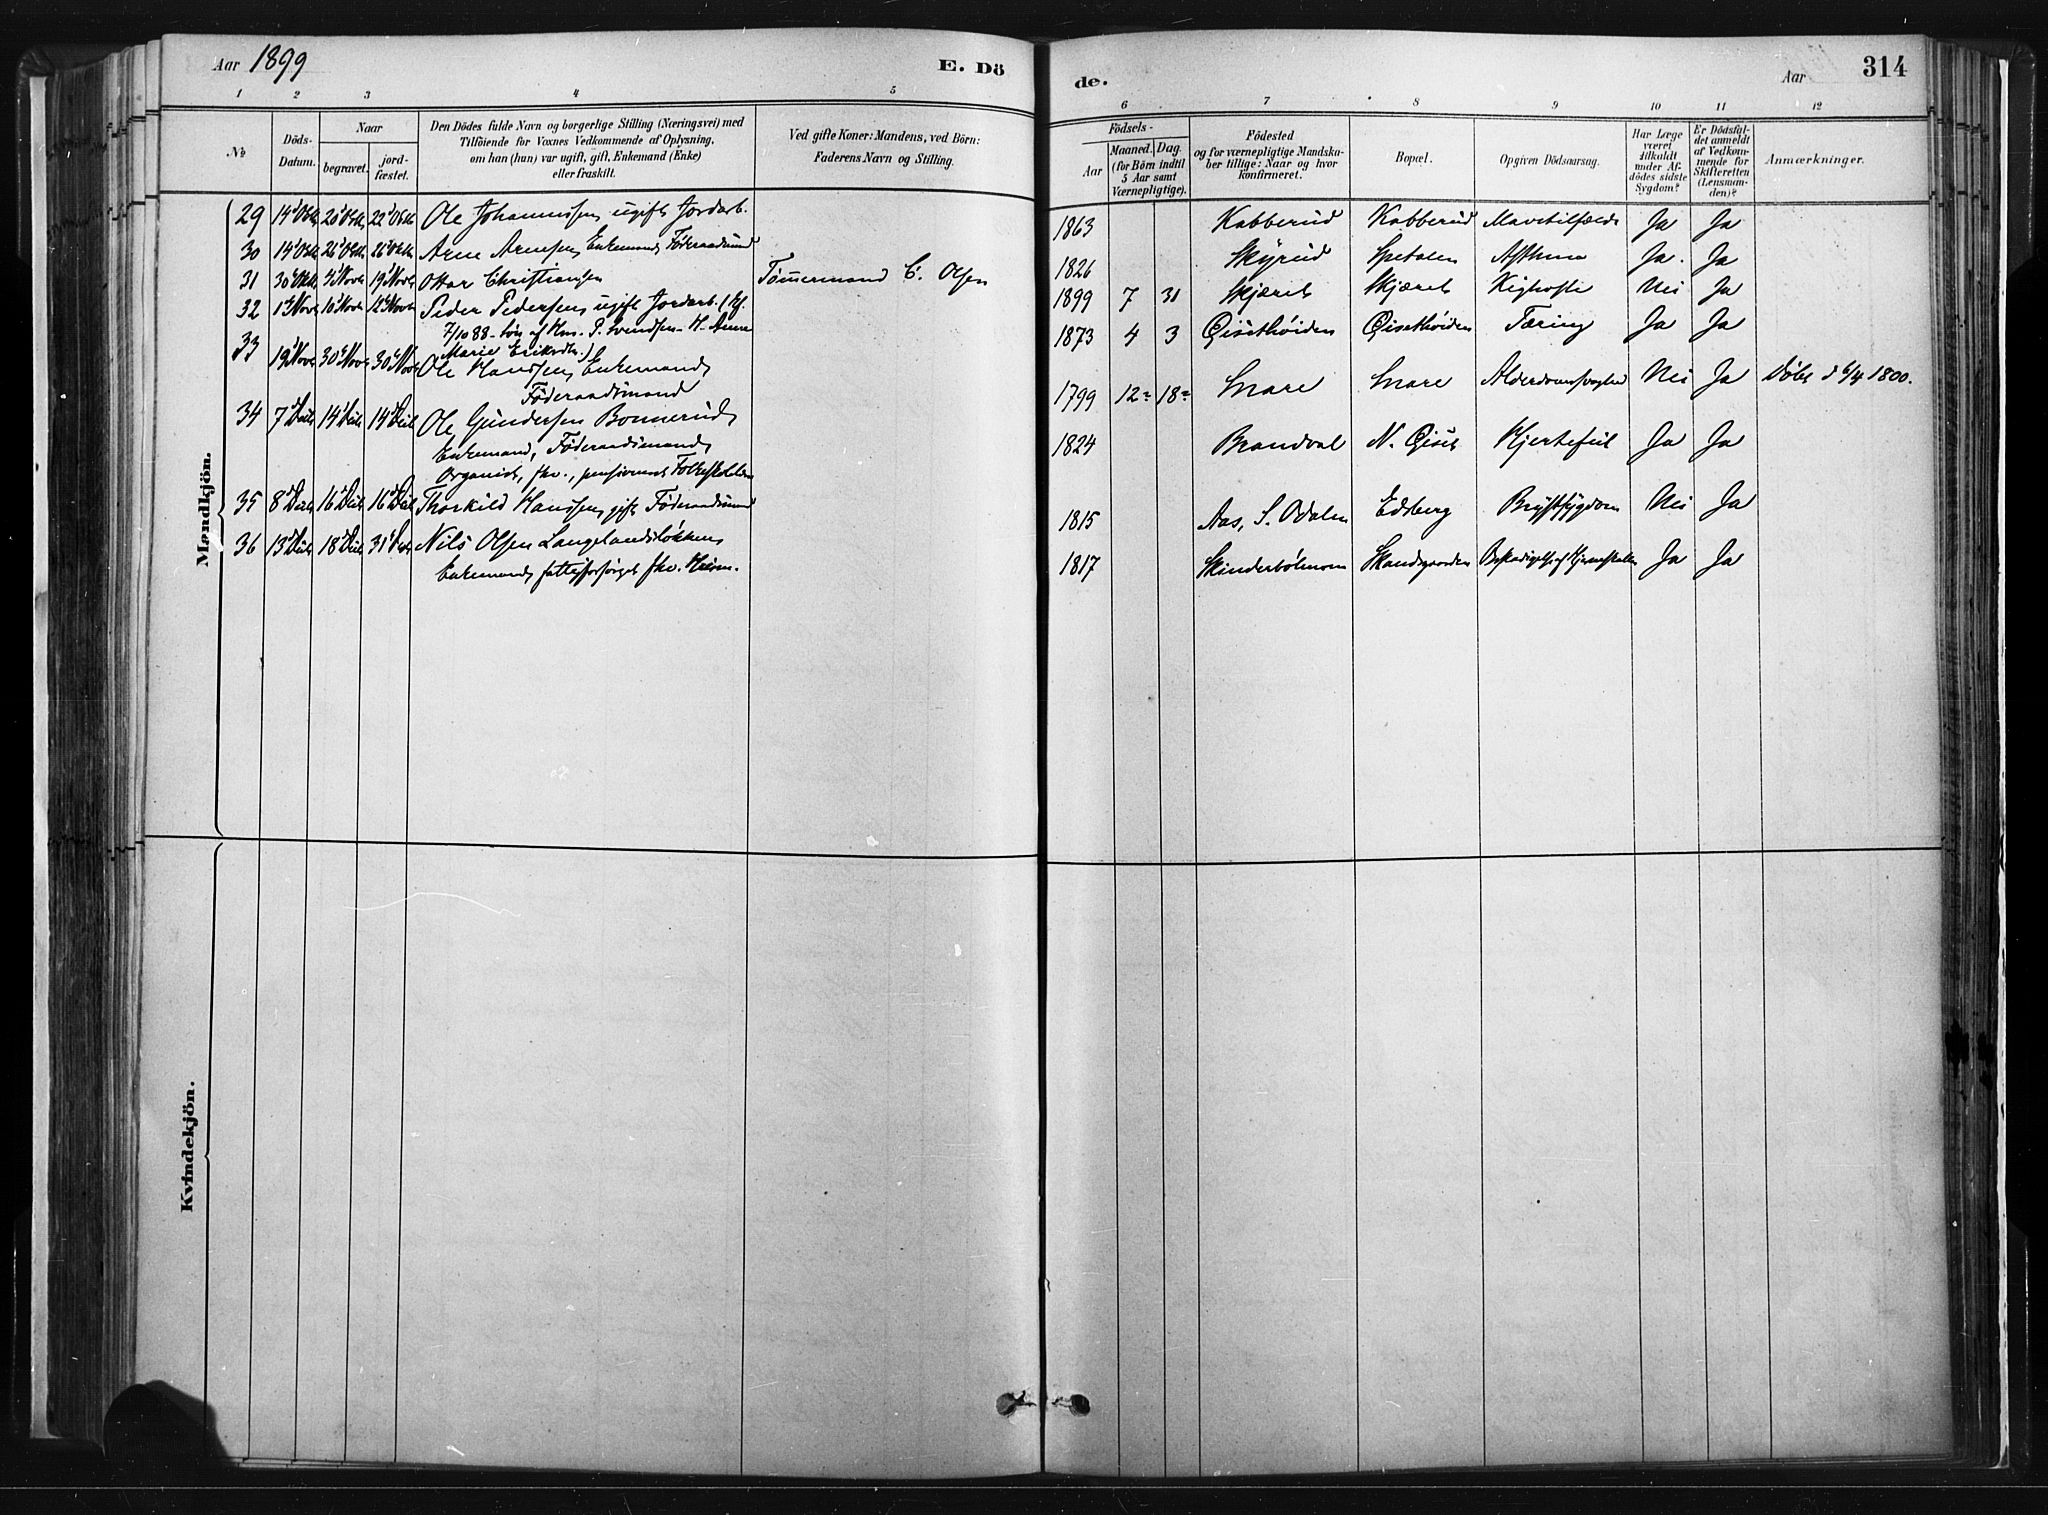 Aar 1899
E. Dö
de.
Aar
314
1 2 3 4 5 6 7 8 9 10 11 12
№
Döds-
Datum.
Naar
begravet.
jord-
fæstet.
Den Dödes fulde Navn og borgerlige Stilling (Næringsvei) med
Tilföiende for Voxnes Vedkommende af Oplysning,
om han (hun) var ugift, gift, Enkemand (Enke)
eller fraskilt.
Ved gifte Koner: Mandens, ved Börn:
Faderens Navn og Stilling.
Födsels-
Aar
Maaned. Dag.
(for Börn indtil
5 Aar samt
Værnepligtige).
Födested
og for værnepligtige Mandska-
ber tillige: Naar og hvor
konfirmeret.
Bopæl.
Opgiven Dödsaarsag.
Har Læge
været
tilkaldt
under Af-
dödes sidste
Sygdom?
Er Dödsfal-
det anmeldt
af Vedkom-
mende for
Skifteretten
(Lensman-
den)?
Anmærkninger.
Mandkjön.
29 14de Oktr 20de Oktr 22de Oktr Ole Johannessen, ugift Jordarb. 1863 Kabberud Kabberud Mavetilfælde Ja Ja
30 14de Oktr 26de Oktr 26de Oktr Arne Arnesen, Enkemand, Föderaadsmand 1826 Skyrud Spetalen Asthma Ja. Ja
31 30de Oktr 4de Novbr 19de Novbr Ottar Christiansen Tömmermand C. Olsen 1899 7 31 Skjæret Skjæret Kighoste Nei Ja
32 1ste Novbr 10de Novbr 12te Novbr Peder Pedersen, ugift Jordarb. (kf.
7/10 88 - Sön af Hus. P. Svendsen - H. Anne
Marie Eriksdtr.) 1873 4 3 Öisethöiden Öisethöiden Tæring Ja Ja
33 19de Novbr 30te Novbr 30te Novbr Ole Hanssen, Enkemand,
Föderaadsmand 1799 12 18 Snare Snare Alderdomssvaghed Nei Ja Döbt d 6/4 1800.
34 7de 14de 14de Ole Gundersen Bonnerud,
Enkemand, Föderaadsmand,
Organist, fhv., pensioneret 1824 Brandval N. Öiset Hjertefeil Ja Ja
35 8de 16de 16de Thorkild Hanssen, gift Föderaadsmand 1815 Aas, S. Odalen Edsberg Brystsygdom Nei Ja
36 13de 18de 31te Nils Olsen Langelandslökken,
Enkemand, fattigforsörget fhv. 1817 Skinderbölmoen Ja Ja
Kvindekjön.